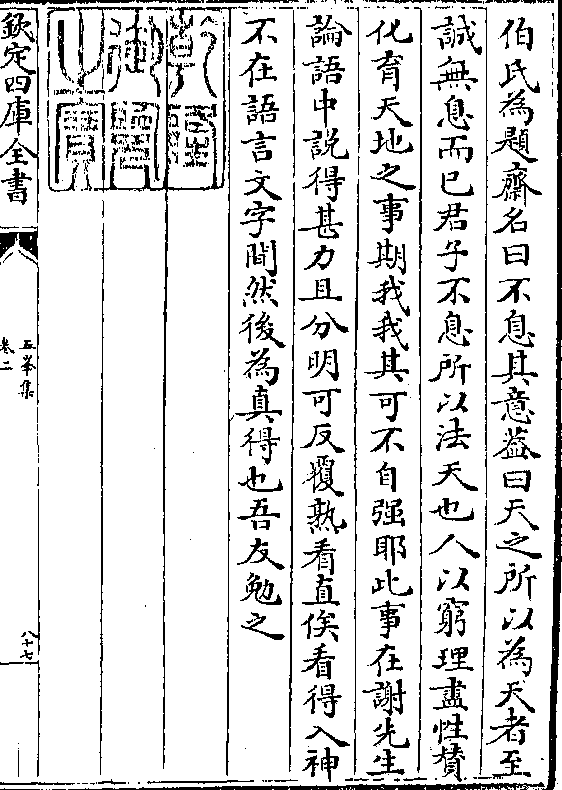 伯氏為題齋名曰不息其意葢曰天之所以為天者至
誠無息而已君子不息所以法天也人以窮理盡性賛
化育天地之事期我我其可不自强耶此事在謝先生
論語中說得甚力且分明可反覆熟看直俟看得入神
不在語言文字間然後為真得也吾友勉之
乾隆
御覽
之寶
欽定四庫全書
五峯集
卷二
八十七